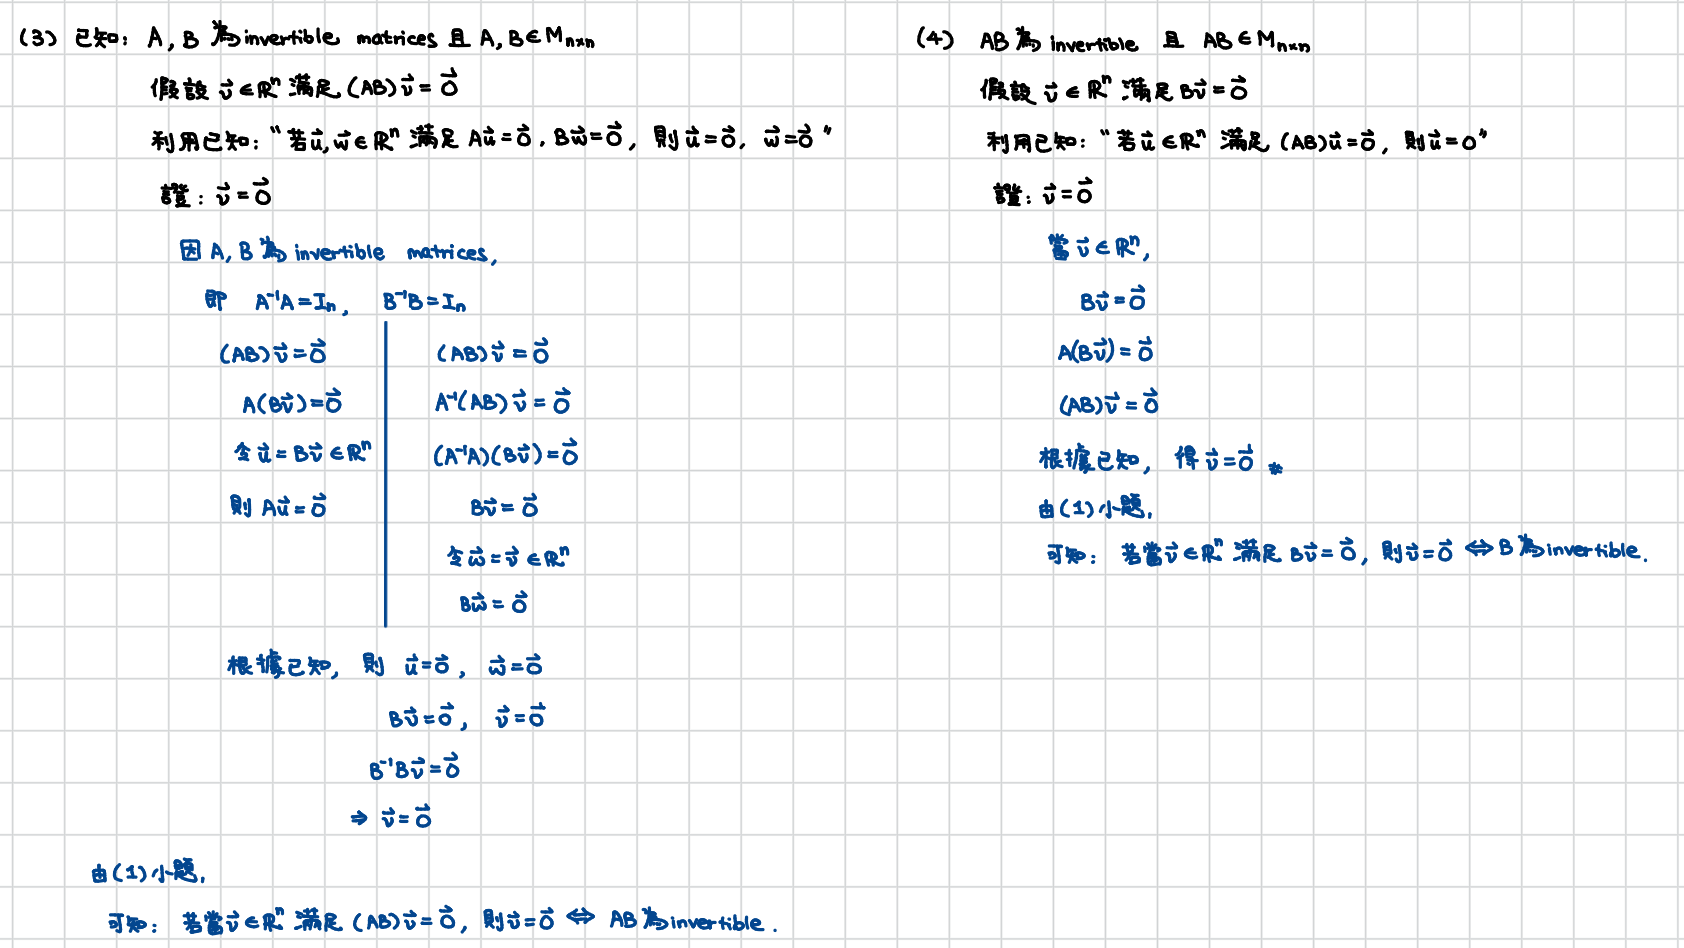 (3) 已知: A, B 為 invertible matrices 且 A, B∈M_{n×n}
假設 v⃗∈ℝⁿ 滿足 (AB)v⃗ = 0⃗
利用已知: "若u⃗, w⃗∈ℝⁿ 滿足 Au⃗=0⃗, Bw⃗=0⃗, 則u⃗=0⃗, w⃗=0⃗"
證: v⃗=0⃗
因 A, B 為 invertible matrices,
即 A⁻¹A=Iₙ, B⁻¹B=Iₙ
(AB)v⃗=0⃗
A(Bv⃗)=0⃗
令 u⃗=Bv⃗∈ℝⁿ
則 Au⃗=0⃗
(AB)v⃗=0⃗
A⁻¹(AB)v⃗=0⃗
(A⁻¹A)(Bv⃗)=0⃗
Bv⃗=0⃗
令w⃗=v⃗∈ℝⁿ
Bw⃗=0⃗
根據已知, 則 u⃗=0⃗, w⃗=0⃗
Bv⃗=0⃗, v⃗=0⃗
B⁻¹Bv⃗=0⃗
⇒ v⃗=0⃗
由(1)小題,
可知: 若當v⃗∈ℝⁿ 滿足 (AB)v⃗=0⃗, 則v⃗=0⃗ ⇔ AB 為 invertible.
(4) AB 為 invertible 且 AB∈M_{n×n}
假設 v⃗∈ℝⁿ 滿足 Bv⃗=0⃗
利用已知: "若u⃗∈ℝⁿ 滿足 (AB)u⃗=0⃗, 則u⃗=0"
證: v⃗=0⃗
當 v⃗∈ℝⁿ,
Bv⃗=0⃗
A(Bv⃗)=0⃗
(AB)v⃗=0⃗
根據已知, 得 v⃗=0⃗ ※
由(1)小題,
可知: 若當v⃗∈ℝⁿ 滿足 Bv⃗=0⃗, 則v⃗=0⃗ ⇔ B 為 invertible.